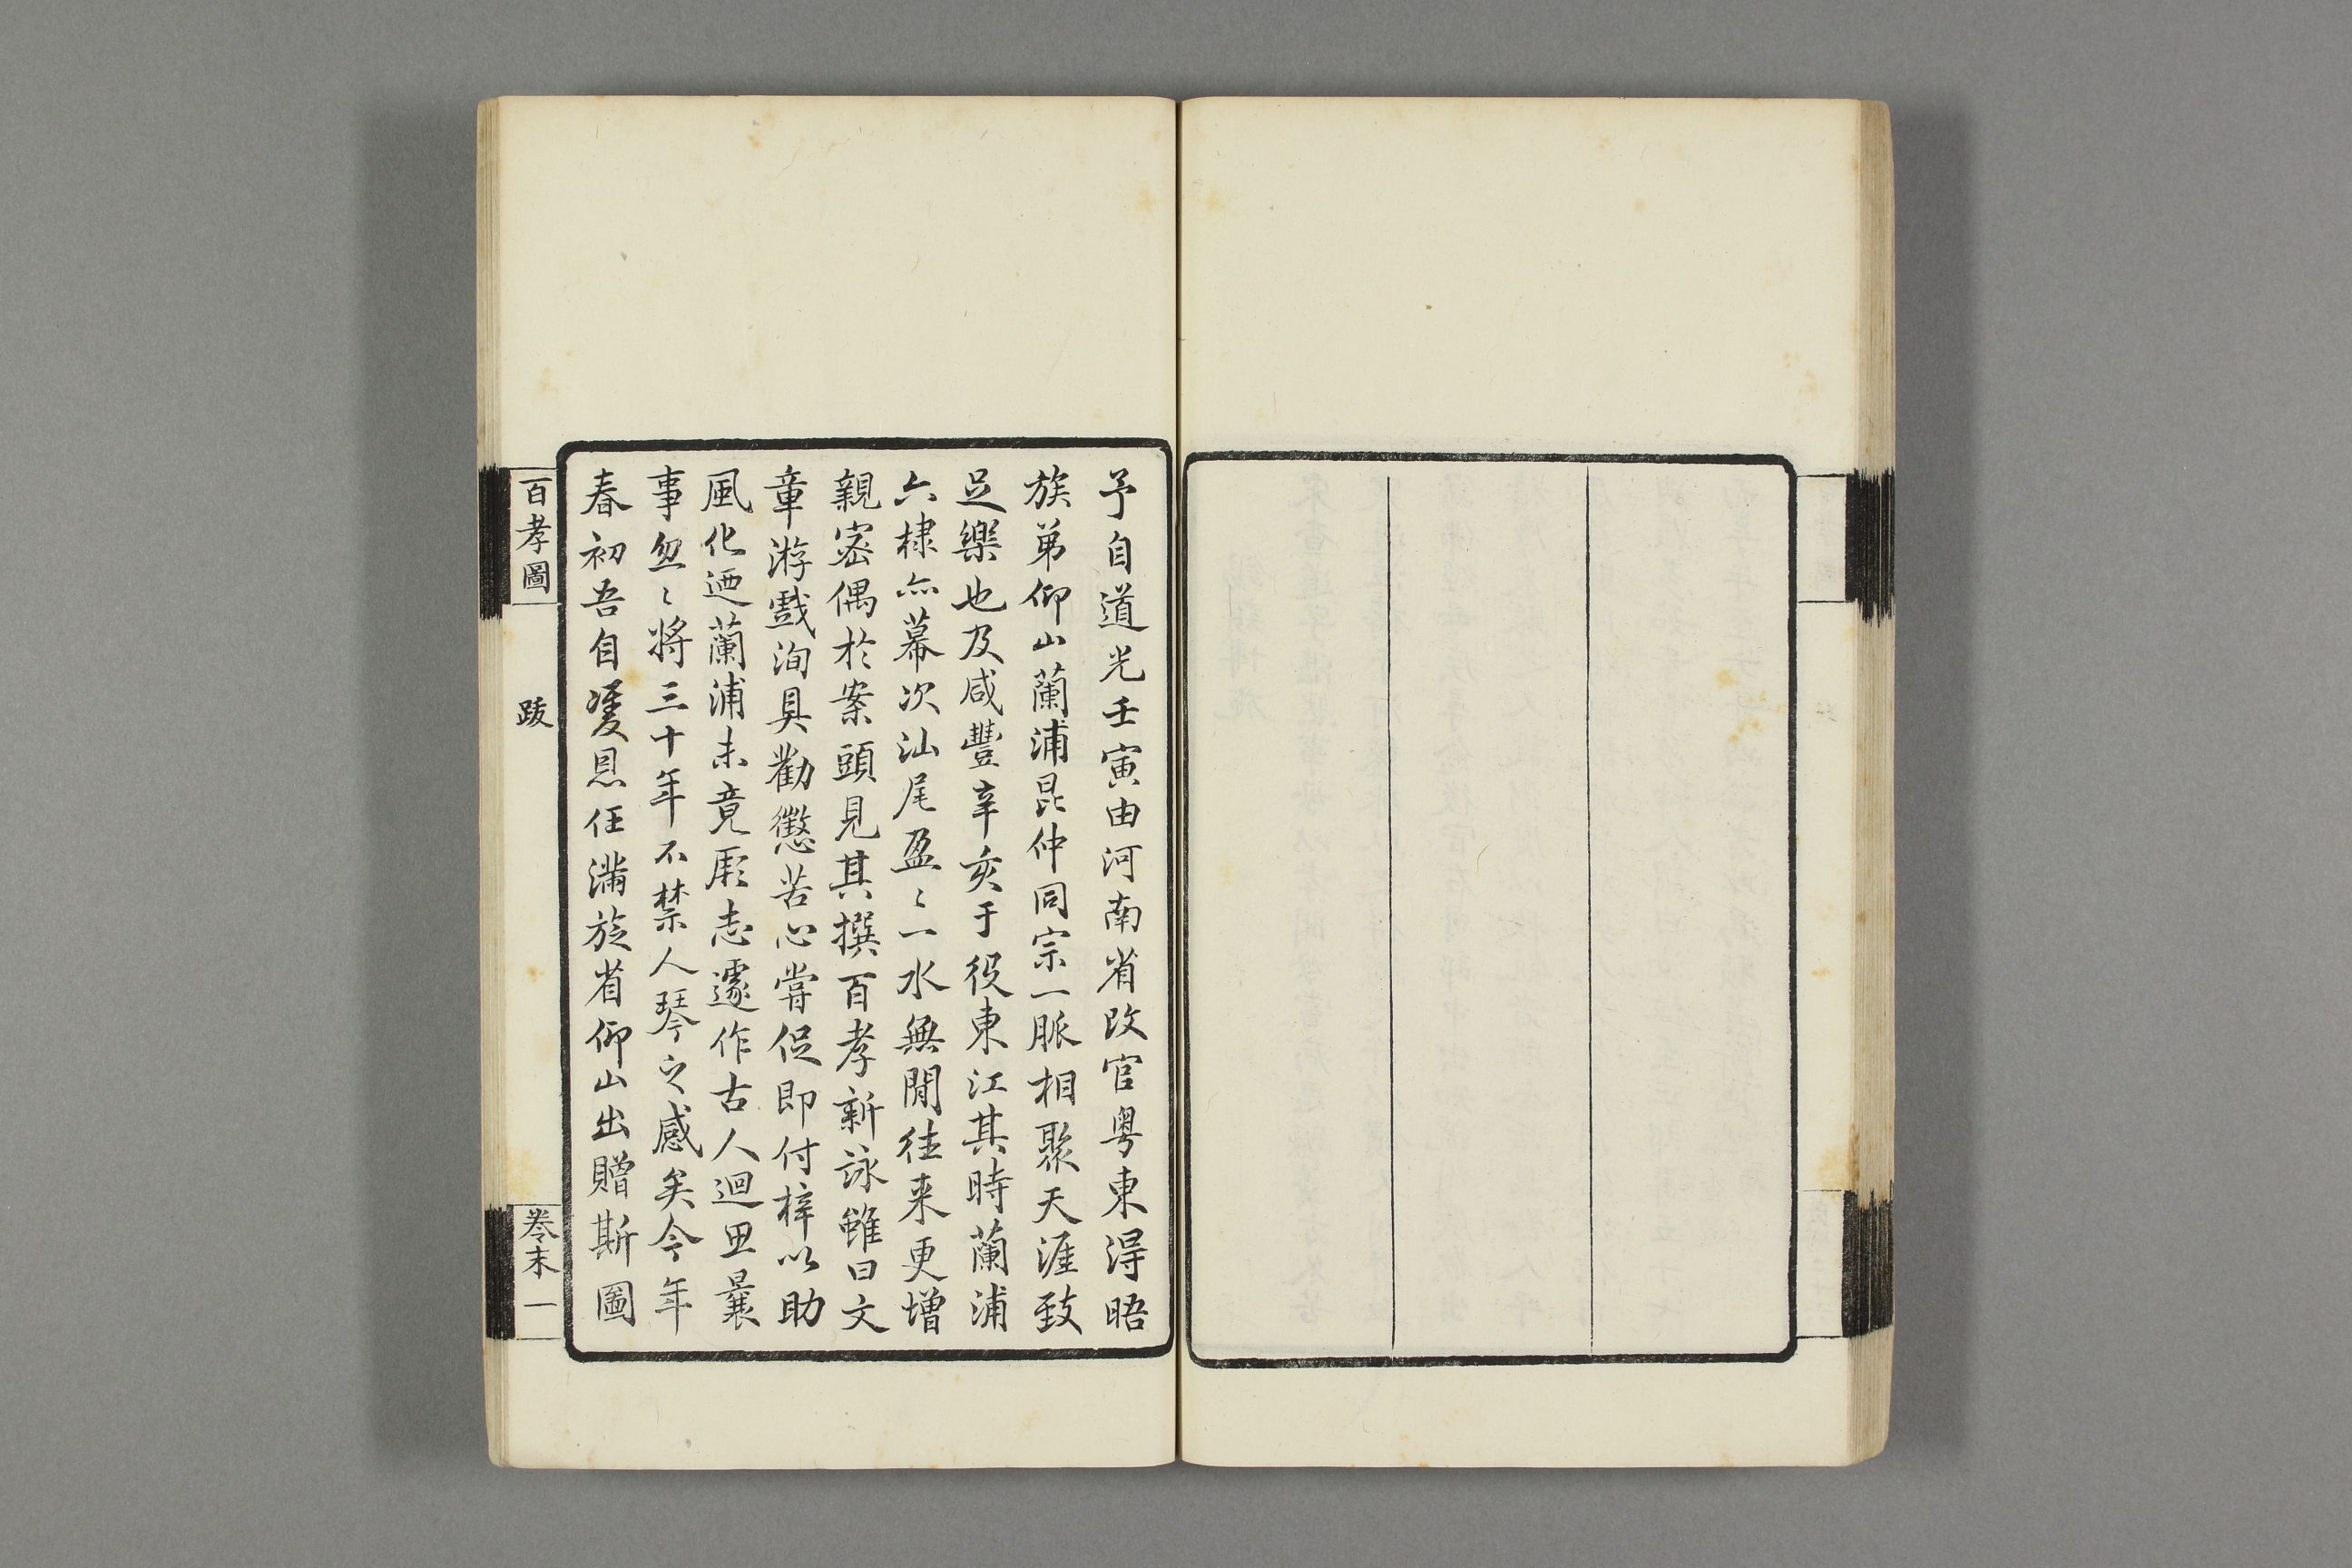 予自道光壬寅由河南省改官粤東得晤
族弟仰山蘭浦昆仲同宗一脈相聚天涯致
足樂也及咸豐辛亥于役東江其時蘭浦
六棣亦幕次汕尾盈〻一水無間往来更增
親密偶於案頭見其撰百孝新詠雖曰文
章游戲洵具勸懲苦心嘗促即付梓以助
風化迺蘭浦未竟厥志遽作古人迴思曩
事忽〻將三十年不禁人琴之感矣今年
春初吾自 恩任滿旋省仰山出贈斯圖
百孝圖
跋
卷末 一